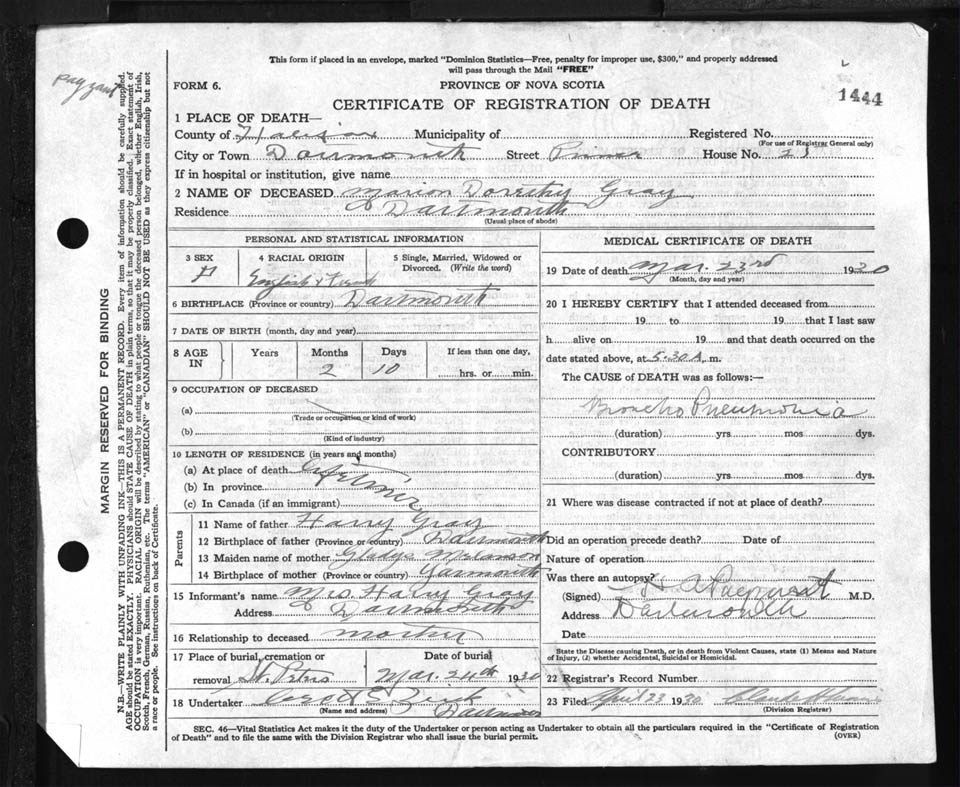 This form if placed in an envelope, marked "Dominion Statistics—Free, penalty for improper use, $300," and properly addressed
will pass through the Mail "FREE"
Payzant
FORM 6.
PROVINCE OF NOVA SCOTIA
1444
CERTIFICATE OF REGISTRATION OF DEATH
1 PLACE OF DEATH—
County of Halifax Municipality of Registered No.
(For use of Registrar General only)
City or Town Dartmouth Street House No. 25
If in hospital or institution, give name
2 NAME OF DECEASED Marion Dorothy Gray
Residence Dartmouth
(Usual place of abode)
PERSONAL AND STATISTICAL INFORMATION
3 SEX 4 RACIAL ORIGIN 5 Single, Married, Widowed or
Divorced. (Write the word)
F English & French
6 BIRTHPLACE (Province or country) Dartmouth
7 DATE OF BIRTH (month, day and year)
8 AGE IN Years Months Days If less than one day,
2 10 hrs. or min.
9 OCCUPATION OF DECEASED
(a)
(Trade or occupation or kind of work)
(b)
(Kind of industry)
10 LENGTH OF RESIDENCE (in years and months)
(a) At place of death Lifetime
(b) In province
(c) In Canada (if an immigrant)
Parents
11 Name of father Harry Gray
12 Birthplace of father (Province or country) Dartmouth
13 Maiden name of mother Gladys Melanson
14 Birthplace of mother (Province or country) Yarmouth
15 Informant's name Mrs. Harry Gray
Address Dartmouth
16 Relationship to deceased mother
17 Place of burial, cremation or Date of burial
removal St. Peters Mar. 24th 1930
18 Undertaker Zink
(Name and address) Dartmouth
MEDICAL CERTIFICATE OF DEATH
19 Date of death Mar. 23rd 1930
(Month, day and year)
20 I HEREBY CERTIFY that I attended deceased from
19 to 19 that I last saw
h alive on 19 and that death occurred on the
date stated above, at 5.30 A. m.
The CAUSE of DEATH was as follows:—
Broncho Pneumonia
(duration) yrs mos dys.
CONTRIBUTORY
(duration) yrs. mos dys.
21 Where was disease contracted if not at place of death?
Did an operation precede death? Date of
Nature of operation
Was there an autopsy?
(Signed) H. A. Payzant M.D.
Address Dartmouth
Date
State the Disease causing Death, or in death from Violent Causes, state (1) Means and Nature
of Injury, (2) whether Accidental, Suicidal or Homicidal.
22 Registrar's Record Number
23 Filed April 23 1930
(Division Registrar)
SEC. 46—Vital Statistics Act makes it the duty of the Undertaker or person acting as Undertaker to obtain all the particulars required in the "Certificate of Registration
of Death" and to file the same with the Division Registrar who shall issue the burial permit.
(OVER)
MARGIN RESERVED FOR BINDING
N.B.—WRITE PLAINLY WITH UNFADING INK—THIS IS A PERMANENT RECORD. Every item of information should be carefully supplied.
AGE should be stated EXACTLY. PHYSICIANS should STATE CAUSE OF DEATH in plain terms, so that it may be properly classified. Exact statement of
OCCUPATION is very important. RACIAL ORIGIN will be described by stating to what people or tongue the deceased person belonged, whether English, Irish,
Scotch, French, German, Russian, Ruthenian, etc. The terms "AMERICAN" or "CANADIAN" SHOULD NOT BE USED as they express citizenship but not
a race or people. See instructions on back of Certificate.